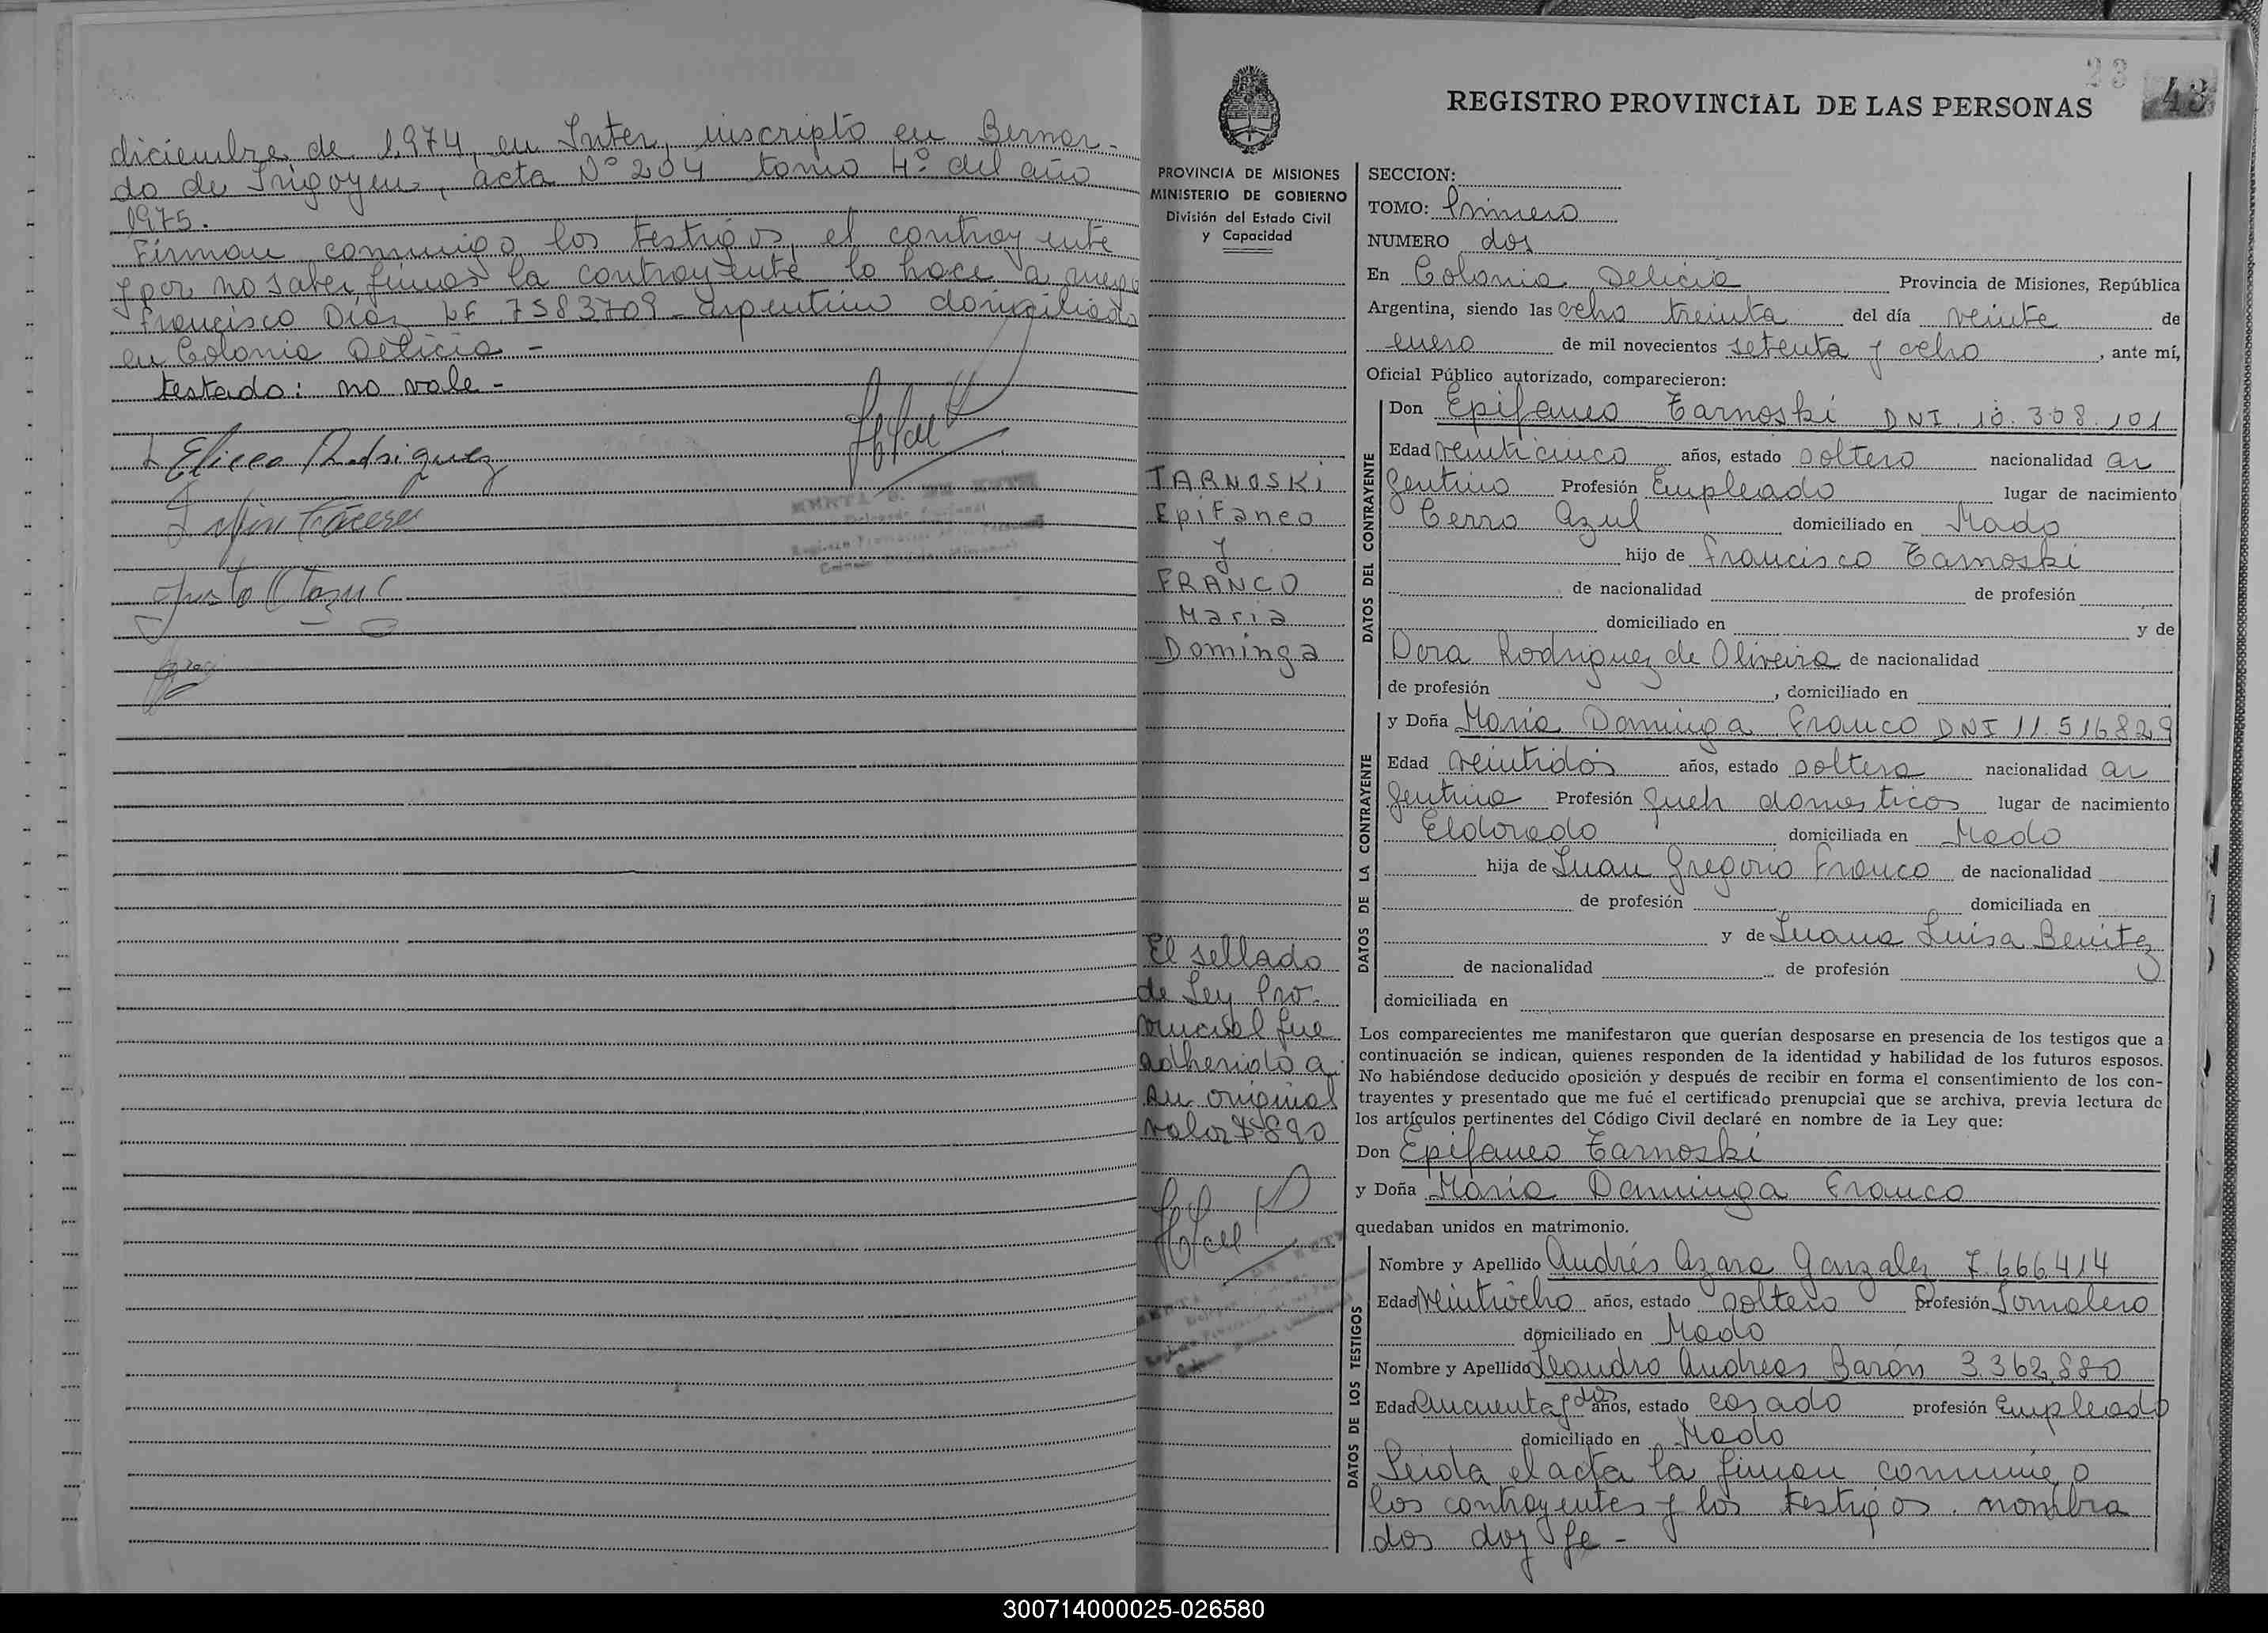 diciembre de 1974, en Inter, inscripto en Bernar-
do de Irigoyen, acta Nº 204 tomo 4º del año
1975.
Firman conmigo los testigos, el contrayente
y por no saber firmar la contrayente lo hace a ruego
Francisco Díaz LE 7583709 - argentino domiciliado
en Colonia Delicia -
testado: no vale -
Rodriguez
Justo
23
43
REGISTRO PROVINCIAL DE LAS PERSONAS
PROVINCIA DE MISIONES
MINISTERIO DE GOBIERNO
División del Estado Civil
y Capacidad
TARNOSKI
Epifaneo
y
FRANCO
Maria
Dominga
El sellado
de Ley Pro-
vincial fue
adherido a
su original
valor $ 890
SECCION:
TOMO: Primero
NUMERO dos
En Colonia Delicia Provincia de Misiones, República
Argentina, siendo las ocho treinta del día veinte de
enero de mil novecientos setenta y ocho, ante mí,
Oficial Público autorizado, comparecieron:
DATOS DEL CONTRAYENTE
Don Epifaneo Tarnoski DNI. 10.308.101
Edad veinticinco años, estado soltero nacionalidad ar
gentino Profesión Empleado lugar de nacimiento
Cerro Azul domiciliado en Mado
hijo de Francisco Tarnoski
de nacionalidad de profesión
domiciliado en y de
Dora Rodriguez de Oliveira de nacionalidad
de profesión , domiciliado en
DATOS DE LA CONTRAYENTE
y Doña María Dominga Franco DNI 11.516829
Edad veintidós años, estado soltera nacionalidad ar
gentina Profesión queh domesticos lugar de nacimiento
Eldorado domiciliada en Mado
hija de Juan Gregorio Franco de nacionalidad
de profesión domiciliada en
y de Juana Luisa Benitez
de nacionalidad de profesión
domiciliada en
Los comparecientes me manifestaron que querían desposarse en presencia de los testigos que a
continuación se indican, quienes responden de la identidad y habilidad de los futuros esposos.
No habiéndose deducido oposición y después de recibir en forma el consentimiento de los con-
trayentes y presentado que me fué el certificado prenupcial que se archiva, previa lectura de
los artículos pertinentes del Código Civil declaré en nombre de la Ley que:
Don Epifaneo Tarnoski
y Doña María Dominga Franco
quedaban unidos en matrimonio.
DATOS DE LOS TESTIGOS
Nombre y Apellido Andrés Azara Gonzalez 7.666414
Edad veintiocho años, estado soltero profesión Jornalero
domiciliado en Mado
Nombre y Apellido Leandro Andreas Barón 3.362.880
Edad cincuenta y dos años, estado casado profesión Empleado
domiciliado en Mado
Leida el acta la firman conmigo
los contrayentes y los testigos nombra
dos doy fe -
300714000025-026580